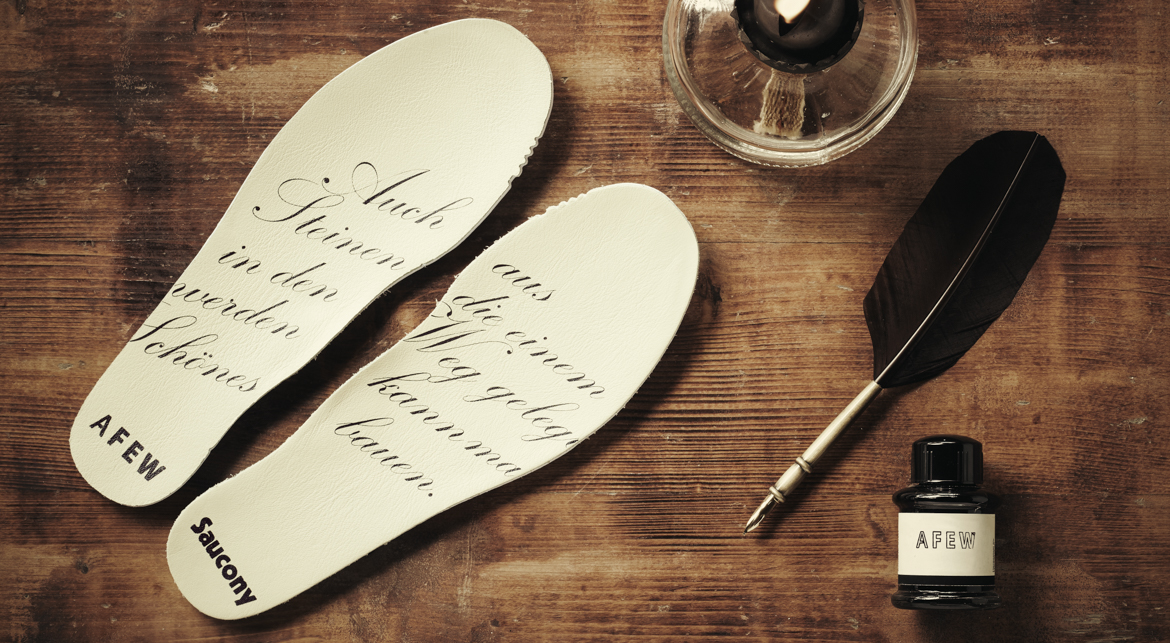 Auch
Steinen
in den
werden
Schönes
AFEW
aus
die einem
Weg gelegt
kann ma
bauen.
Saucony
AFEW